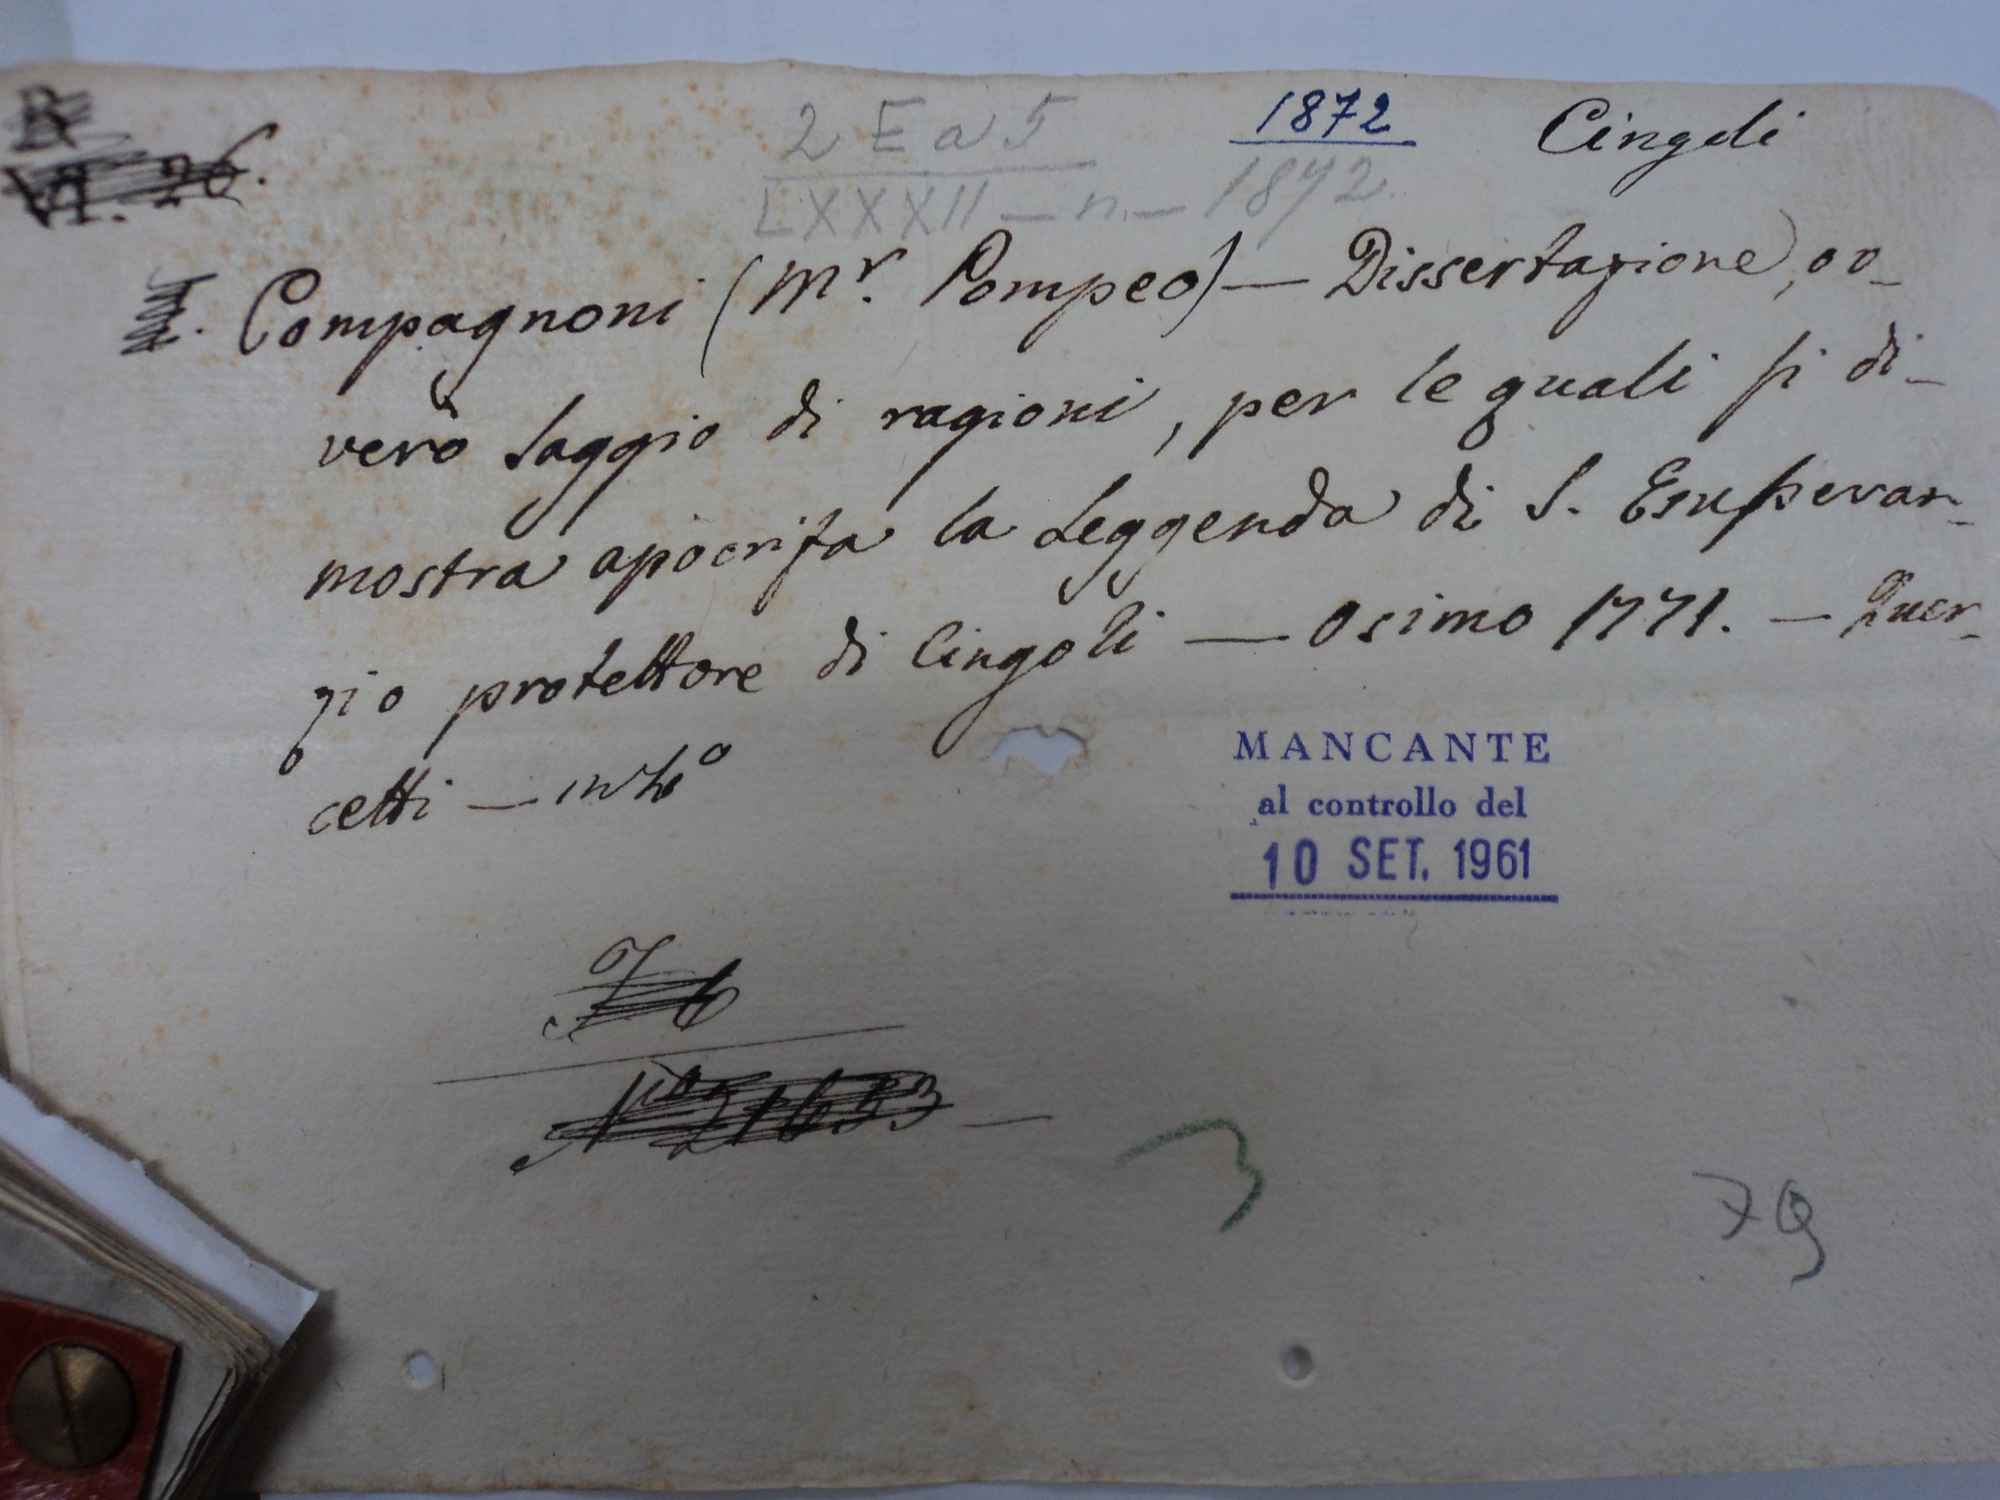 2 E a 5
LXXXII - n. - 1872.
1872
Cingoli
VI. 26.
Compagnoni (Mr. Pompeo) — Dissertazione, ov-
vero Saggio di ragioni, per le quali si di-
mostra apocrifa la Leggenda di S. Esuperan-
zio protettore di Cingoli — Osimo 1771. — Quer-
cetti — in 4º
MANCANTE
al controllo del
10 SET. 1961
Nº 21653 —